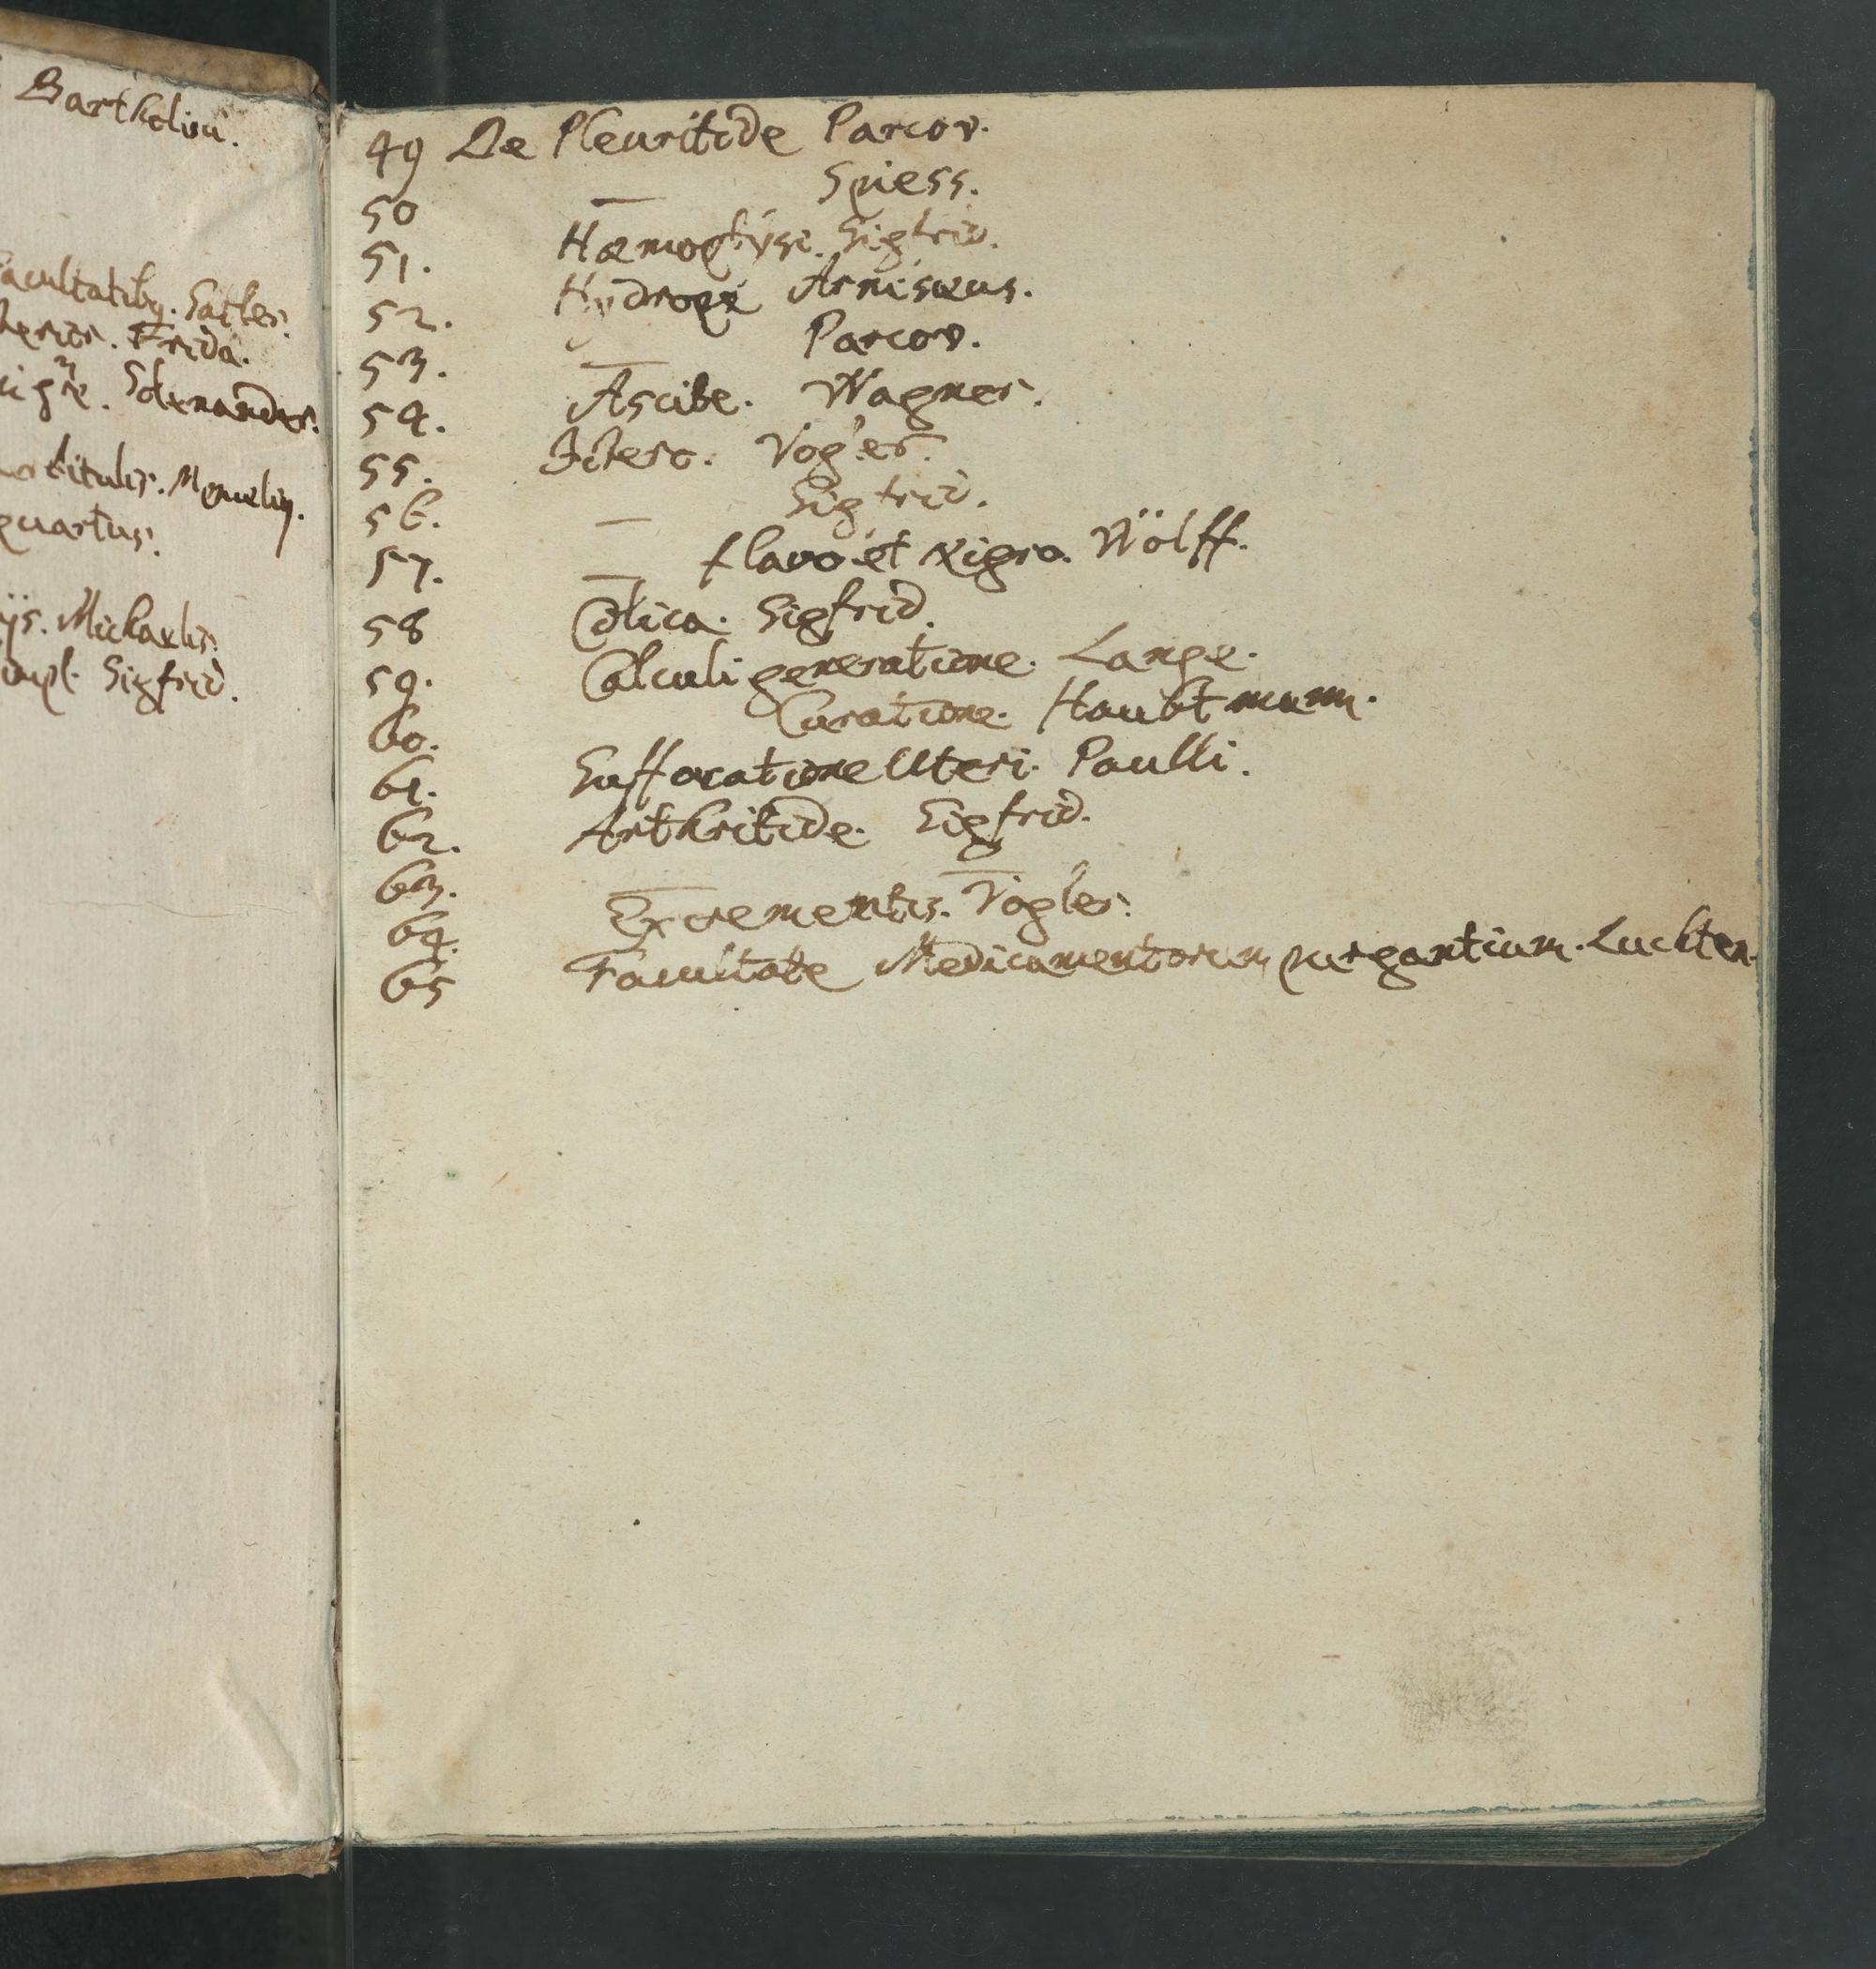 Bartholini.
Facultatibq. Satler.
Frida.
Schenander.
titulis.
quartus.
Michaelis.
Sigfrid.
49 De Pleuritide Parcov.
50 — Spiess.
51. Hæmoptysi. Sigfrid.
52. Hydrope Arnisæus.
53. — Parcov.
54. Ascite. Wagner.
55. Ictero. Vogler.
56. — Sigfrid.
57. — flavo et nigro. Wölff.
58 Colica. Sigfrid.
59. Calculi generatione. Lange.
60. Curatione. Haubtmann.
61. Suffocatione Uteri. Paulli.
62. Arthritide. Sigfrid.
63. — —
64. Excrementis. Vogler.
65 Facultate Medicamentorum purgantium. Luchten.